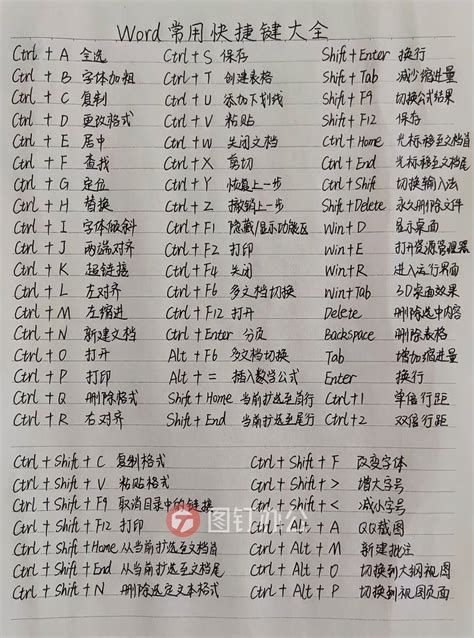 Word 常用快捷键大全
Ctrl + A 全选 Ctrl + S 保存 Shift + Enter 换行
Ctrl + B 字体加粗 Ctrl + T 创建表格 Shift + Tab 减少缩进量
Ctrl + C 复制 Ctrl + U 添加下划线 Shift + F9 切换公式结果
Ctrl + D 更改格式 Ctrl + V 粘贴 Shift + F12 保存
Ctrl + E 居中 Ctrl + W 关闭文档 Ctrl + Home 光标移至文档首
Ctrl + F 查找 Ctrl + X 剪切 Ctrl + End 光标移至文档尾
Ctrl + G 定位 Ctrl + Y 恢复上一步 Ctrl + Shift 切换输入法
Ctrl + H 替换 Ctrl + Z 撤销上一步 Shift + Delete 永久删除文件
Ctrl + I 字体倾斜 Ctrl + F1 隐藏/显示功能区 Win + D 显示桌面
Ctrl + J 两端对齐 Ctrl + F2 打印 Win + E 打开资源管理器
Ctrl + K 超链接 Ctrl + F4 关闭 Win + R 进入运行界面
Ctrl + L 左对齐 Ctrl + F6 多文档切换 Win + Tab 3D桌面效果
Ctrl + M 左缩进 Ctrl + F12 打开 Delete 删除选中内容
Ctrl + N 新建文档 Ctrl + Enter 分页 Backspace 删除表格
Ctrl + O 打开 Alt + F6 多文档切换 Tab 增加缩进量
Ctrl + P 打印 Alt + = 插入数学公式 Enter 换行
Ctrl + Q 删除格式 Shift + Home 当前扩选至首行 Ctrl + 1 单倍行距
Ctrl + R 右对齐 Shift + End 当前扩选至尾行 Ctrl + 2 双倍行距
Ctrl + Shift + C 复制格式 Ctrl + Shift + F 改变字体
Ctrl + Shift + V 粘贴格式 Ctrl + Shift + > 增大字号
Ctrl + Shift + F9 取消目录中的链接 Ctrl + Shift + < 减小字号
Ctrl + Shift + F12 打印 Ctrl + Alt + A QQ截图
Ctrl + Shift + Home 从当前扩选至文档首 Ctrl + Alt + M 新建批注
Ctrl + Shift + End 从当前扩选至文档尾 Ctrl + Alt + O 切换到大纲视图
Ctrl + Shift + N 删除选定文本格式 Ctrl + Alt + P 切换到视图页面
图钉办公